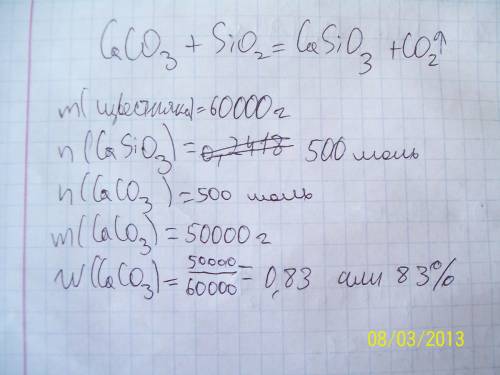 CaCO₃ + SiO₂ = CaSiO₃ + CO₂↑
m(известняка) = 60000 г
n(CaSiO₃) = ~~0,2418~~ 500 моль
n(CaCO₃) = 500 моль
m(CaCO₃) = 50000 г
W(CaCO₃) = 50000/60000 = 0,83 или 83%
08/03/2013